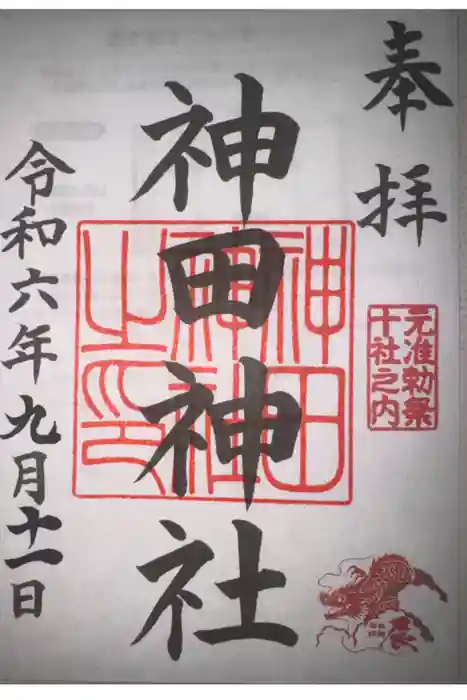 奉拝
元准勅祭
十社之内
神田神社
神田
神社
之印
令和六年九月十一日